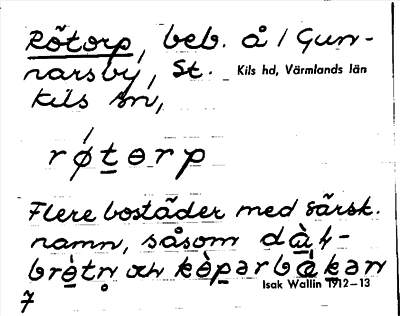 Rötorp, beb. å / Gun-
narsby, St. Kils hd, Värmlands län
kils sn,
røt̲ɵrp
Flere bostäder med särsk.
namn, såsom
och
Isak Wallin 1912–13
7